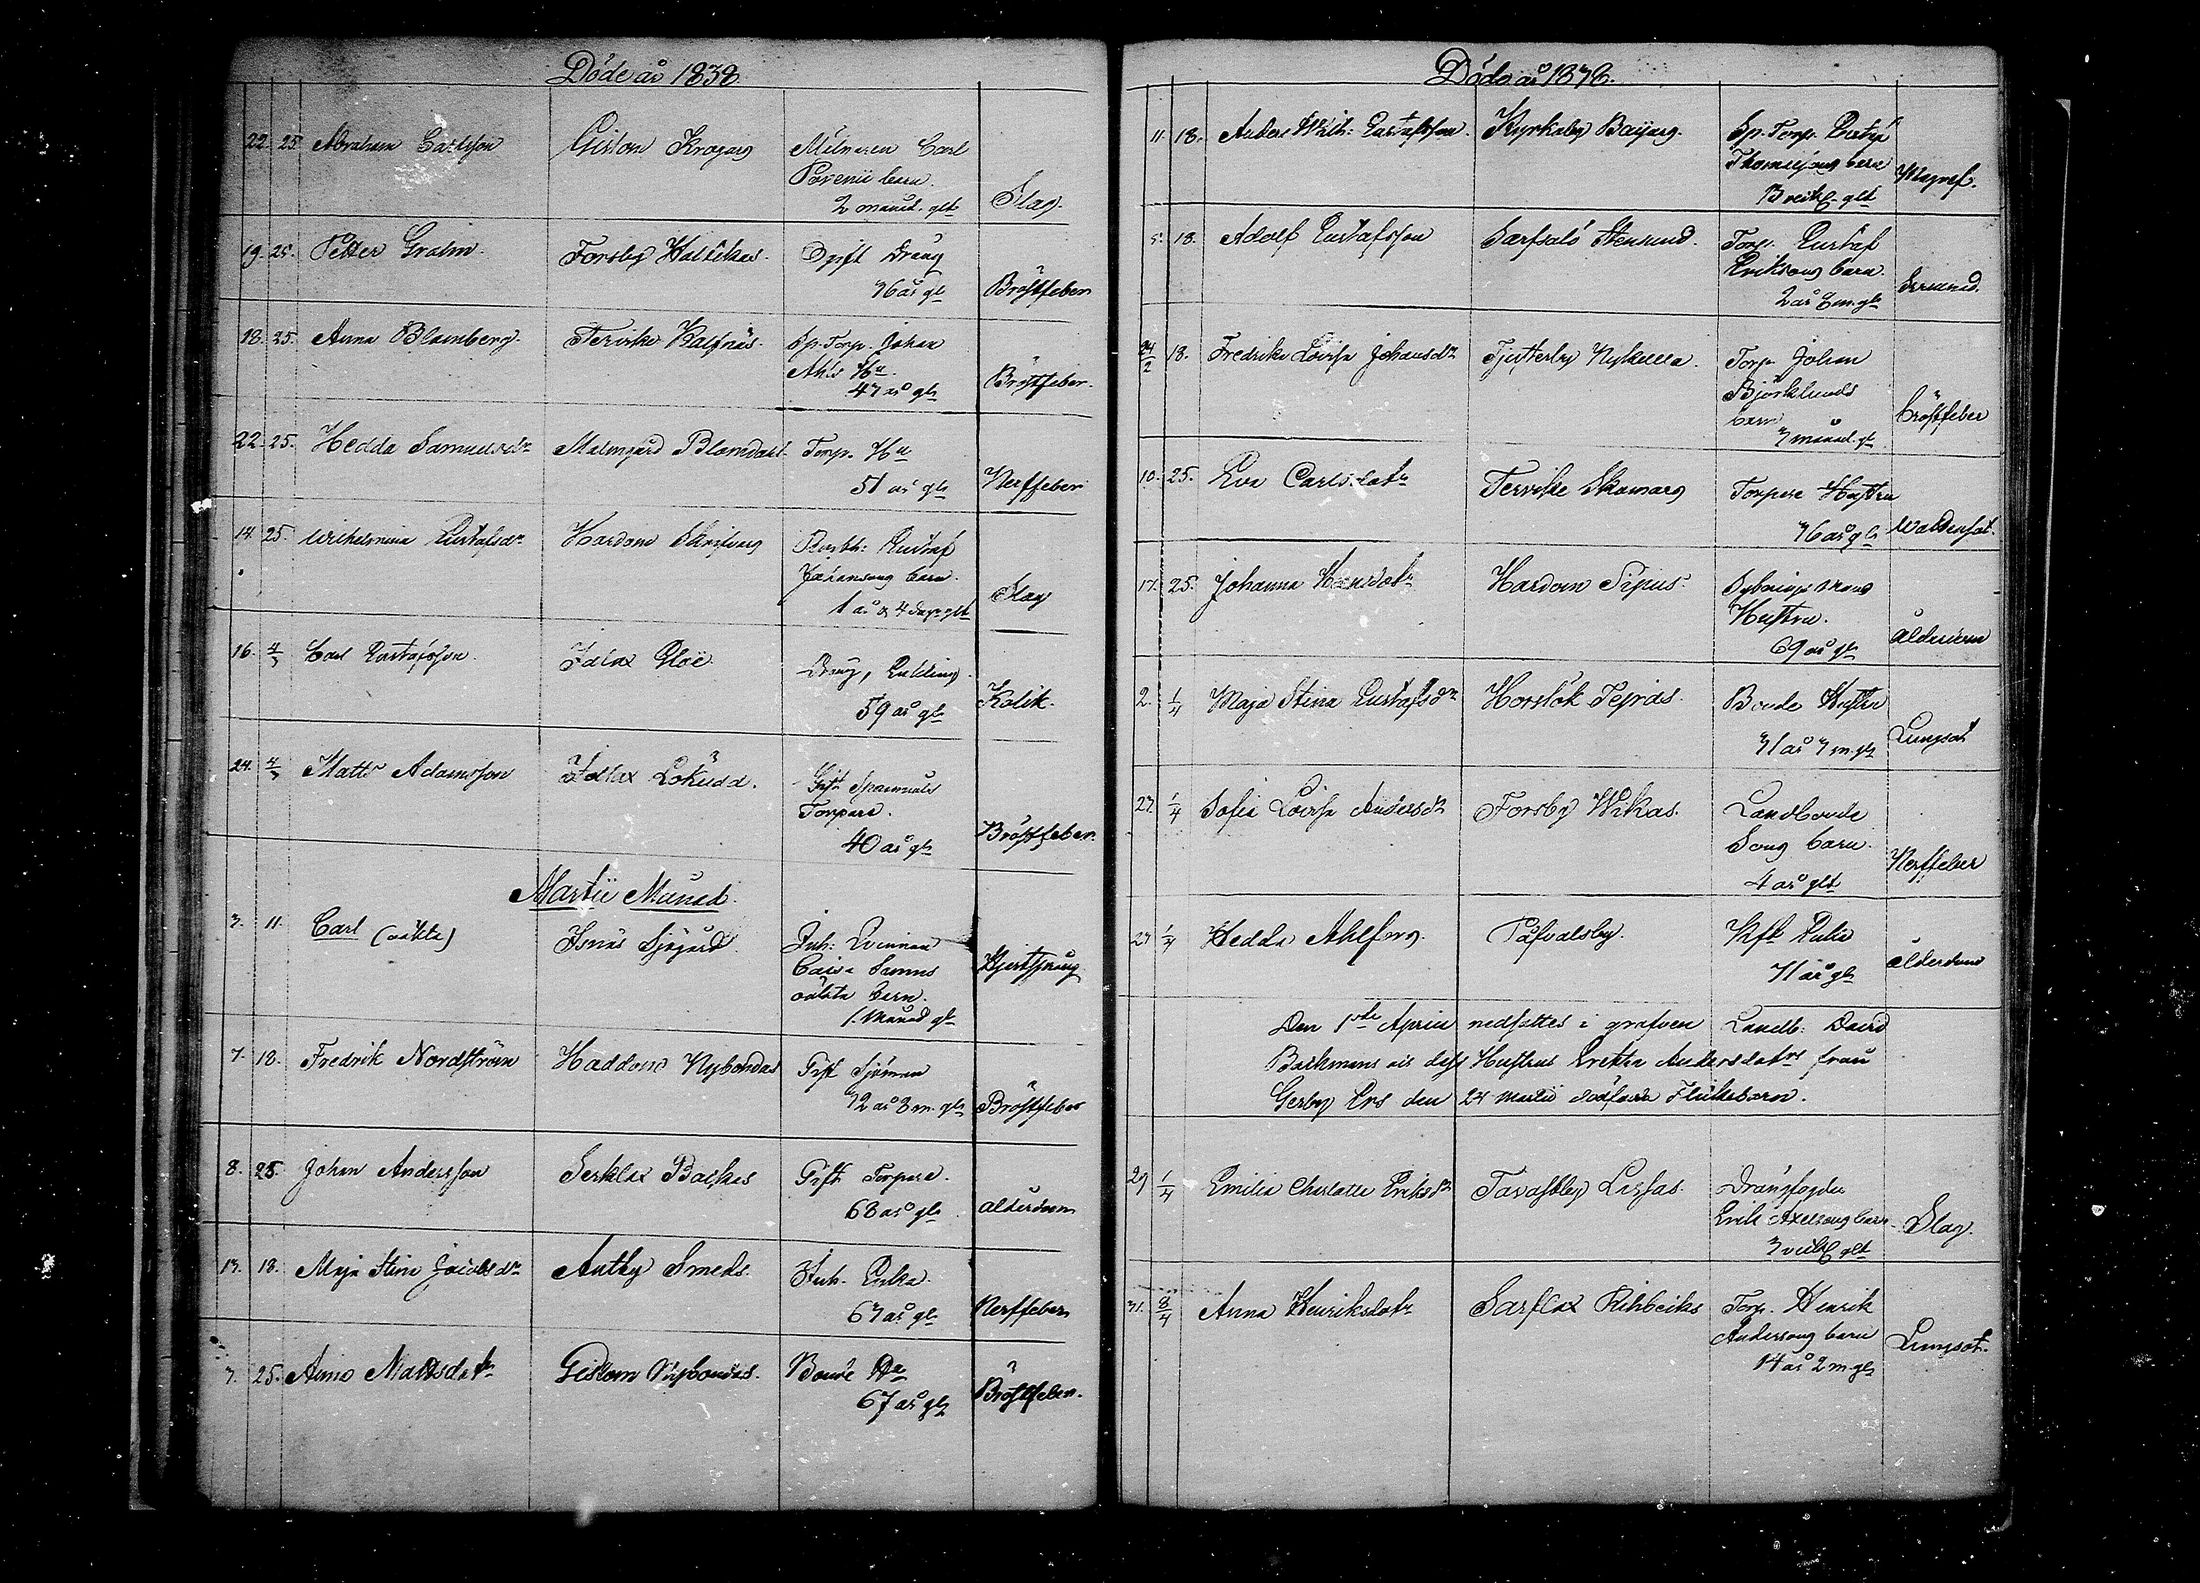 Döde år 1838
22. 25. Abraham Carlsson Gislom Krogars Milnaren Carl
barn.
2 månad. glt Slag.
19. 25. Petter Grolin. Forsby Hallikas. Ogift Dräng
76 år gl Bröstfeber
18. 25. Anna Blomberg. Tervike Kalfnäs. Sp. Torp. Johan
Ahls Hu
47 år gl Bröstfeber.
22. 25. Hedda Samuelsdr Malmgård Blomdahl Torp. Hu
51 år gl Nerffeber
14. 25. Wilhelmina Gustafsdr Hardom Skrifvars Gustaf
Johanssons barn.
1 år & 4 dagr glt Slag
16. 4/3 Carl Gustafsson. Islax Dräng, Enkling.
59 år gl Kolik.
24. 4/3 Matts Adamsson Islax Lökudd. Gift
Torpare.
40 år gl Bröstfeber.
Martii Månad.
3. 11. Carl (oäkta) Isnäs Sjögård Inh: Qvinnan
Caisa
oäkta barn.
1. Månad gl Hjertsprång
7. 18. Fredrik Nordström Haddom Nybondas Gift Sjöman
72 år 8 m. gl Bröstfeber
8. 25. Johan Andersson Serklax Backas Gift Torpare.
68 år gl Ålderdom
13. 18. Maja Stina Jacobsdr Antby Smeds. Inh. Enka.
67 år gl Nerffeber
7. 25. Anna Mattsdotr Gislom Nybondas. Bonde Hu
67 år gl Bröstfeber.
Döde år 1838.
11. 18. Anders Wilh: Gustafsson. Kyrkoby Sp. Torp. Gustaf
Thomassons barn
3 veck. glt Magref.
5. 18. Adolf Gustafsson Sarfsalö Stensund. Torp. Gustaf
Erikssons barn.
2 år 8 m. gl
24/2 18. Fredrika Lovisa Johansdr Tjusterby Nykulla. Torp. Johan
Björklunds
barn
7 månad. gl Bröstfeber
10. 25. Eva Carlsdotr Tervike Skomars Torpare Hustru
76 år gl
17. 25. Johanna Hansdotr Hardom Sipus. Sytnings Mans
Hustru.
69 år gl Ålderdom
2. 1/4 Maja Stina Gustafsdr Horslök Tepras. Bonde Hustru
71 år 7 m. gl Lungsot
27. 1/4 Sofia Lovisa Andersdr Forsby Wikas. Landbonde
Sons barn.
4 år glt Nerffeber
27 1/4 Hedda Ahlfors. Påfvalsby. Enka
71 år gl Ålderdom
Den 1sta April nedsattes i grafven Landb: David
Backmans och dess Hustrus Greta Andersdotrs från
Gerby Ers den 24 Martii dödfödda Flickebarn.
29 1/4 Emilia Charlotta Eriksdr Tavastby Lassas. Drängfogden
Erik Axelssons barn
3 veck. glt Slag.
31. 8/4 Anna Henriksdotr Sarflax Torp. Henrik
Anderssons barn
14 år 2 m. gl Lungsot.